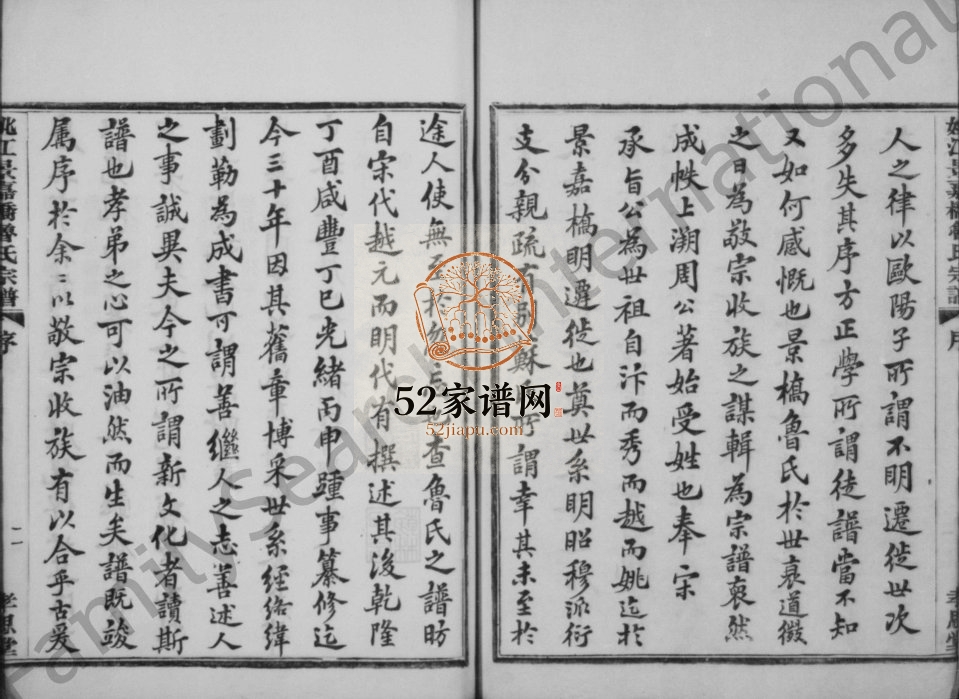 人之律以歐陽子所謂不明遷徙世次
多失其序方正學所謂徒譜當不知
又如何感慨也景橋魯氏於世衰道微
之日為敬宗收族之謀輯為宗譜裒然
成帙上溯周公著始受姓也奉宋
承旨公為世祖自汴而秀而越而姚迄於
景嘉橋明遷徙也奠世系明昭穆派衍
支分親疏 蘇 所謂幸其未至於
途人使無至於 查魯氏之譜昉
自宋代越元而明代有撰述其後乾隆
丁酉咸豐丁巳光緒丙申踵事纂修迄
今三十年因其舊章博采世系經絡緯
劃勒為成書可謂善繼人之志善述人
之事誠異夫今之所謂新文化者讀斯
譜也孝弟之心可以油然而生矣譜既竣
属序於余余以敬宗收族有以合乎古爰
姚江景嘉橋魯氏宗譜 序 二 孝思堂
52家谱网
52jiapu.com
FamilySearch International